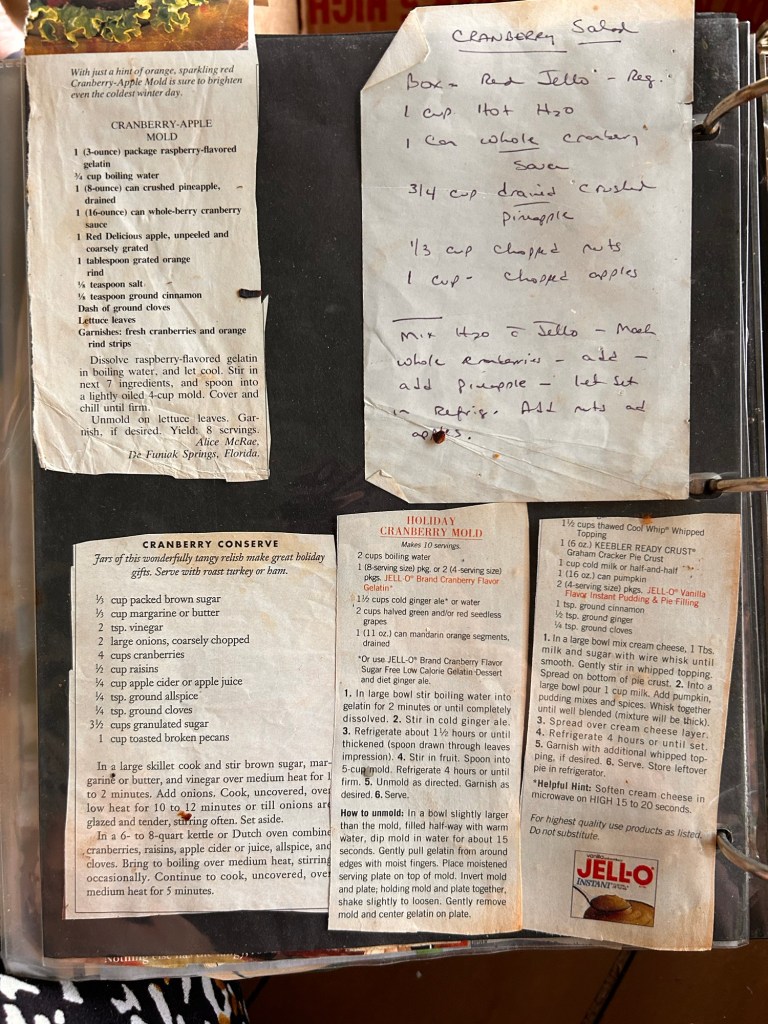 With just a hint of orange, sparkling red
Cranberry-Apple Mold is sure to brighten
even the coldest winter day.
CRANBERRY-APPLE
MOLD
1 (3-ounce) package raspberry-flavored
gelatin
¾ cup boiling water
1 (8-ounce) can crushed pineapple,
drained
1 (16-ounce) can whole-berry cranberry
sauce
1 Red Delicious apple, unpeeled and
coarsely grated
1 tablespoon grated orange
rind
⅛ teaspoon salt
⅛ teaspoon ground cinnamon
Dash of ground cloves
Lettuce leaves
Garnishes: fresh cranberries and orange
rind strips
Dissolve raspberry-flavored gelatin
in boiling water, and let cool. Stir in
next 7 ingredients, and spoon into
a lightly oiled 4-cup mold. Cover and
chill until firm.
Unmold on lettuce leaves. Gar-
nish, if desired. Yield: 8 servings.
Alice McRae,
De Funiak Springs, Florida.
CRANBERRY Salad
Box - Red Jello - Reg.
1 cup Hot H2O
1 Can whole cranberry
Sauce
3/4 cup drained crushed
pineapple
1/3 cup chopped nuts
1 cup - chopped apples
Mix H2O c̄ Jello - Mash
whole cranberries - add -
add pineapple - let set
in Refrig. Add nuts ad
apples.
CRANBERRY CONSERVE
Jars of this wonderfully tangy relish make great holiday
gifts. Serve with roast turkey or ham.
⅓ cup packed brown sugar
⅓ cup margarine or butter
2 tsp. vinegar
2 large onions, coarsely chopped
4 cups cranberries
½ cup raisins
¼ cup apple cider or apple juice
¼ tsp. ground allspice
¼ tsp. ground cloves
3½ cups granulated sugar
1 cup toasted broken pecans
In a large skillet cook and stir brown sugar, mar-
garine or butter, and vinegar over medium heat for 1
to 2 minutes. Add onions. Cook, uncovered, over
low heat for 10 to 12 minutes or till onions are
glazed and tender, stirring often. Set aside.
In a 6- to 8-quart kettle or Dutch oven combine
cranberries, raisins, apple cider or juice, allspice, and
cloves. Bring to boiling over medium heat, stirring
occasionally. Continue to cook, uncovered, over
medium heat for 5 minutes.
HOLIDAY
CRANBERRY MOLD
Makes 10 servings.
2 cups boiling water
1 (8-serving size) pkg. or 2 (4-serving size)
pkgs. JELL-O® Brand Cranberry Flavor
Gelatin*
1½ cups cold ginger ale* or water
2 cups halved green and/or red seedless
grapes
1 (11 oz.) can mandarin orange segments,
drained
*Or use JELL-O® Brand Cranberry Flavor
Sugar Free Low Calorie Gelatin Dessert
and diet ginger ale.
1. In large bowl stir boiling water into
gelatin for 2 minutes or until completely
dissolved. 2. Stir in cold ginger ale.
3. Refrigerate about 1½ hours or until
thickened (spoon drawn through leaves
impression). 4. Stir in fruit. Spoon into
5-cup mold. Refrigerate 4 hours or until
firm. 5. Unmold as directed. Garnish as
desired. 6. Serve.
How to unmold: In a bowl slightly larger
than the mold, filled half-way with warm
water, dip mold in water for about 15
seconds. Gently pull gelatin from around
edges with moist fingers. Place moistened
serving plate on top of mold. Invert mold
and plate; holding mold and plate together,
shake slightly to loosen. Gently remove
mold and center gelatin on plate.
1½ cups thawed Cool Whip® Whipped
Topping
1 (6 oz.) KEEBLER READY CRUST®
Graham Cracker Pie Crust
1 cup cold milk or half-and-half
1 (16 oz.) can pumpkin
2 (4-serving size) pkgs. JELL-O® Vanilla
Flavor Instant Pudding & Pie Filling
1 tsp. ground cinnamon
½ tsp. ground ginger
¼ tsp. ground cloves
1. In a large bowl mix cream cheese, 1 Tbs.
milk and sugar with wire whisk until
smooth. Gently stir in whipped topping.
Spread on bottom of pie crust. 2. Into a
large bowl pour 1 cup milk. Add pumpkin,
pudding mixes and spices. Whisk together
until well blended (mixture will be thick).
3. Spread over cream cheese layer.
4. Refrigerate 4 hours or until set.
5. Garnish with additional whipped top-
ping, if desired. 6. Serve. Store leftover
pie in refrigerator.
*Helpful Hint: Soften cream cheese in
microwave on HIGH 15 to 20 seconds.
For highest quality use products as listed.
Do not substitute.
vanilla
JELL-O®
INSTANT